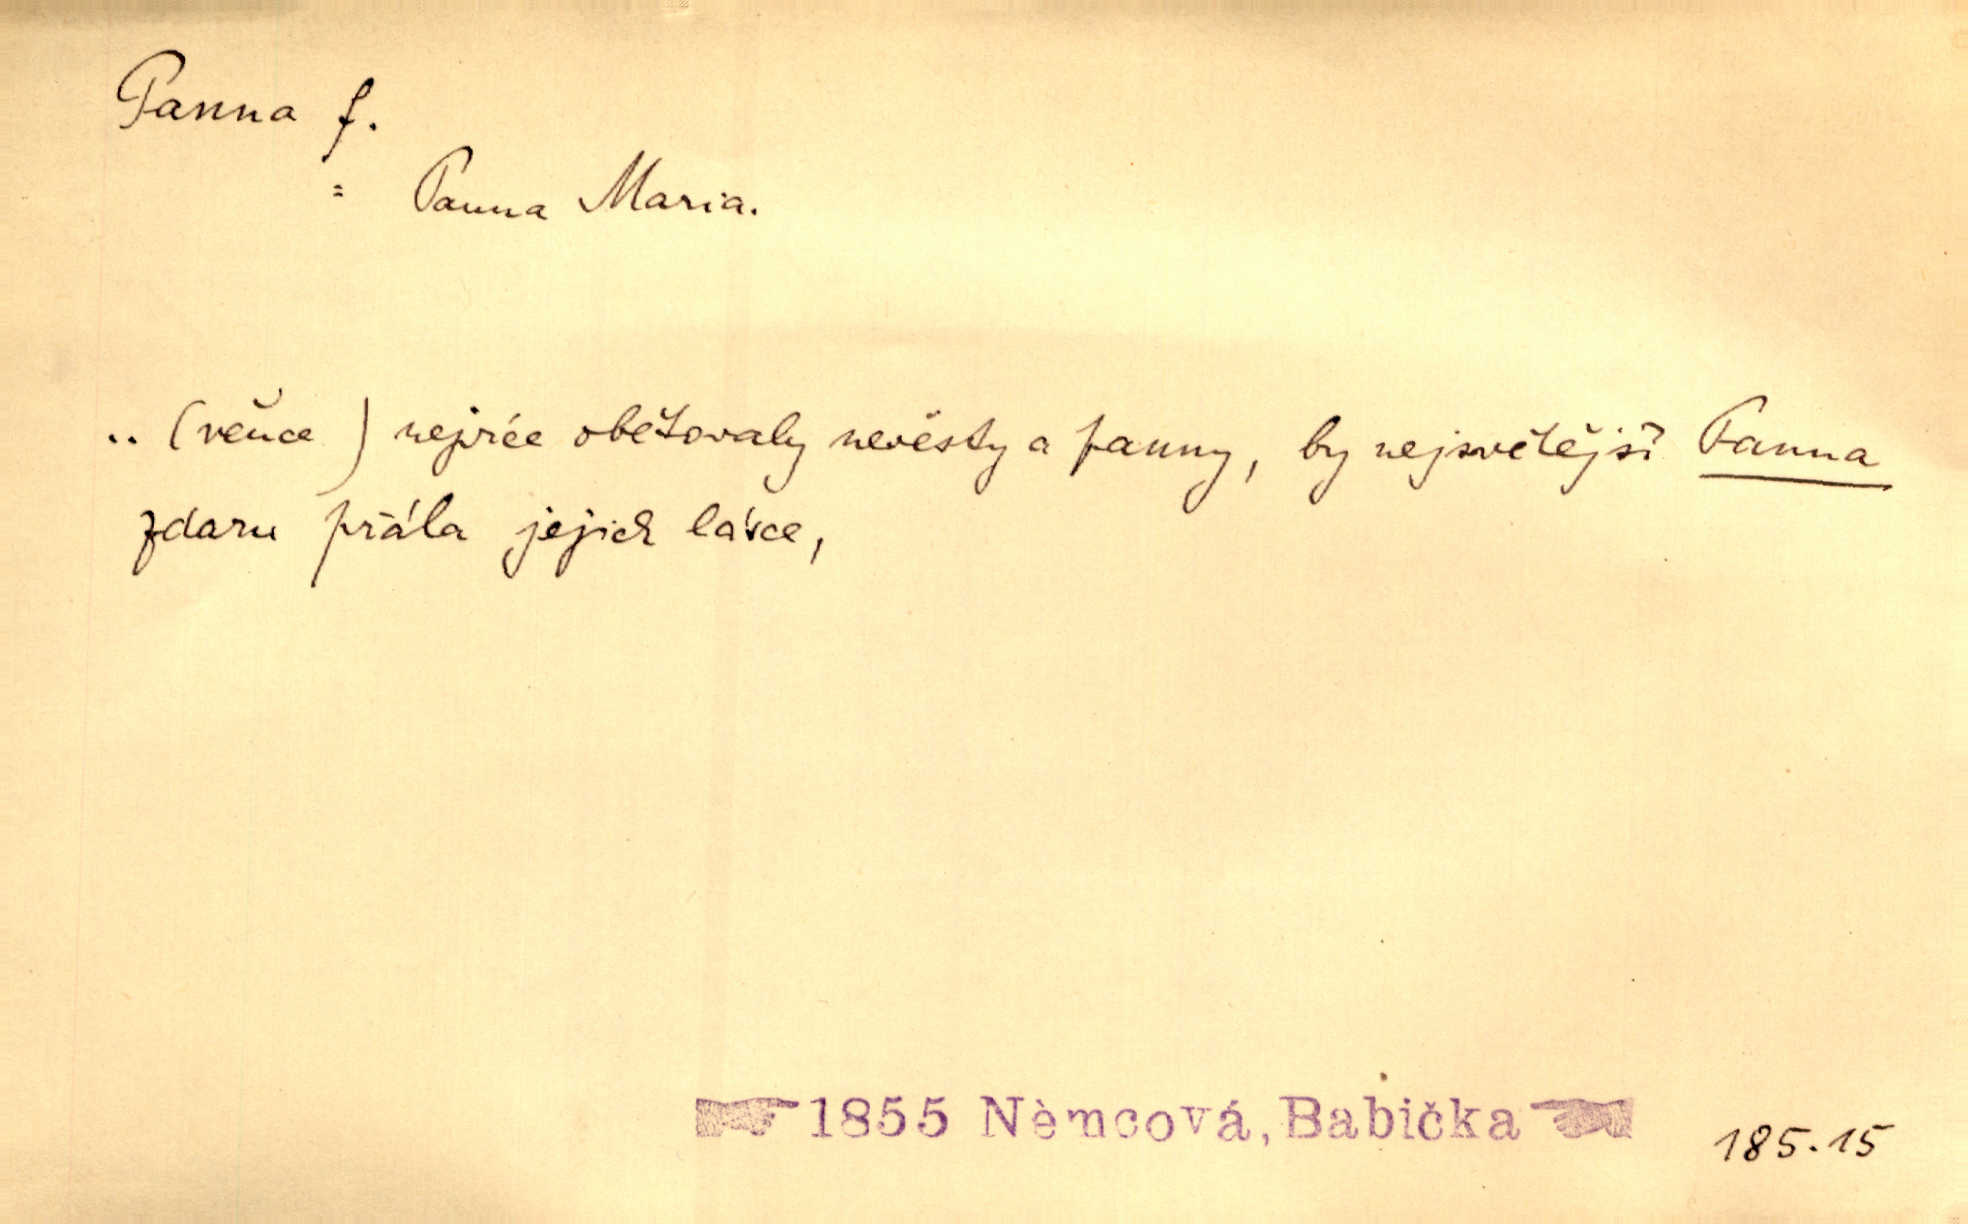 Panna f.
= Panna Maria.
.. (věnce ) nejvíce obětovaly nevěsty a panny, by nejsvětější Panna
zdaru přála jejich lásce,
☛ 1855 Němcová, Babička ☚ 185.15